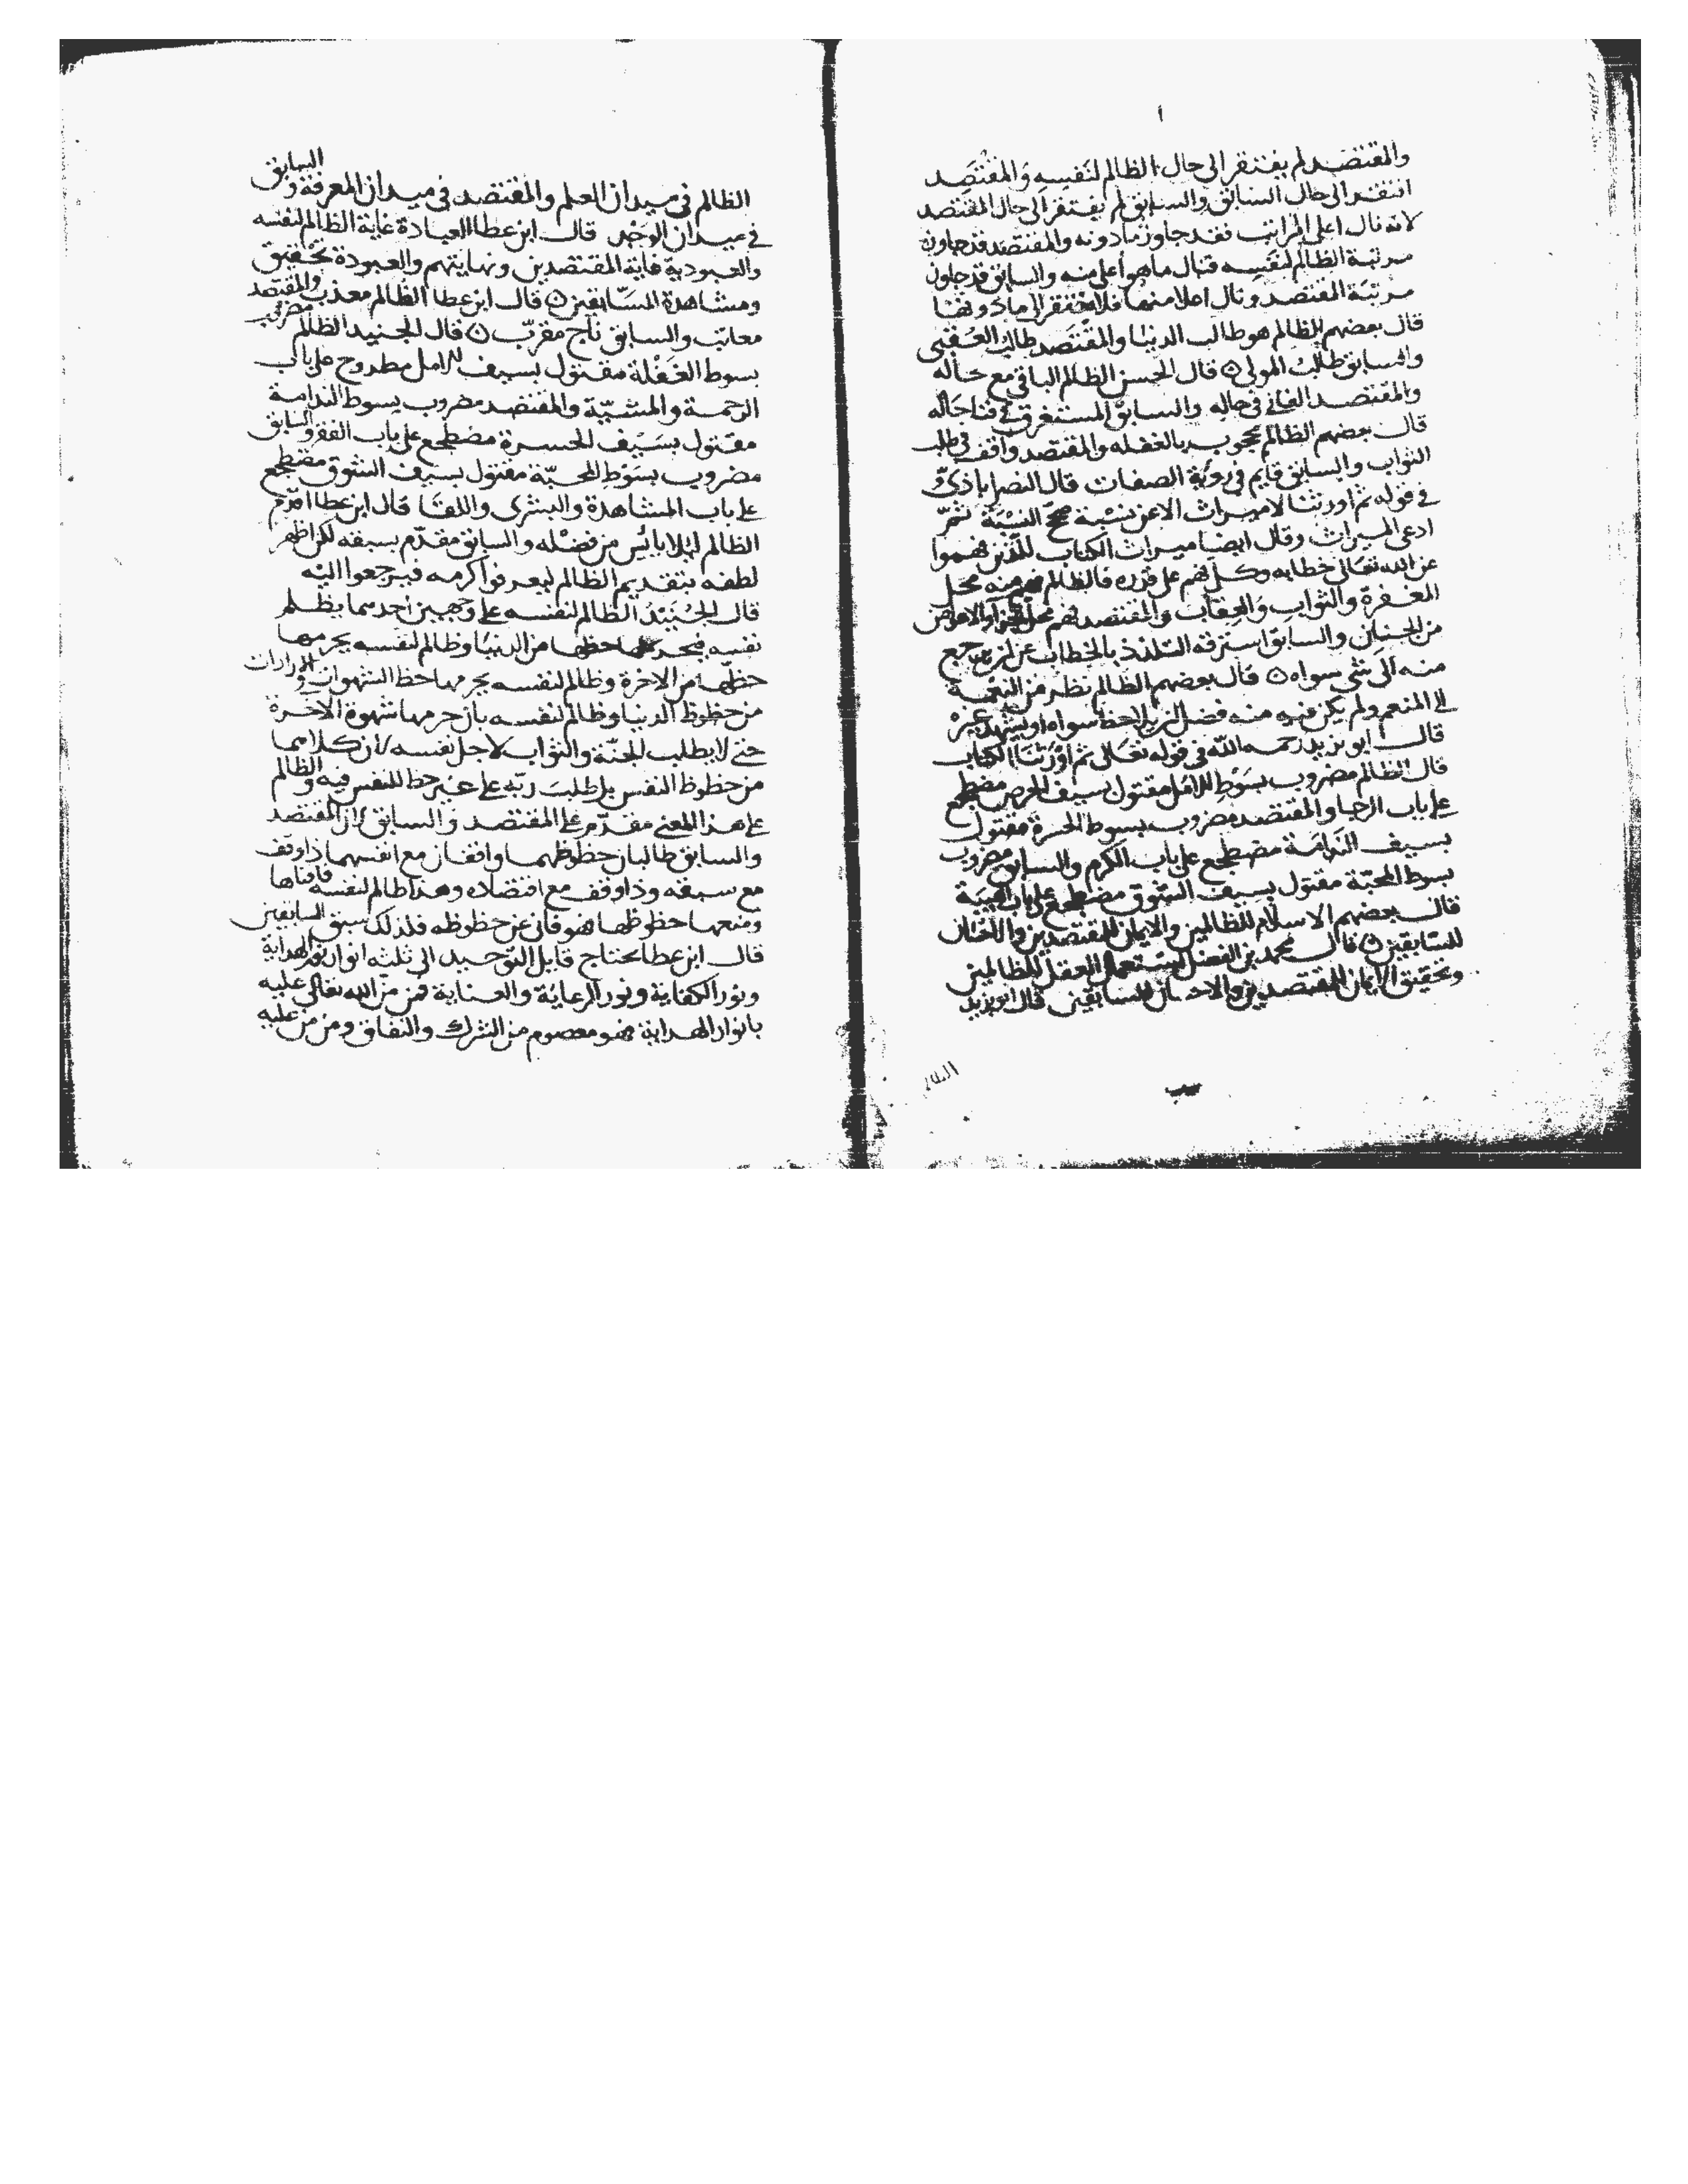 والمقتصد لم يفتقر الى حال الظالم لنفسه والمقتصد
افتقر الى حال السابق والسابق لم يفتقر الى حال المقتصد
لانه نال اعلى المراتب فقد جاوز مادونه والمقتصد قد جاوز
مرتبة الظالم لنفسه فنال ما هو أعلى منه والسابق قد جاوز
مرتبة المقتصد ونال اعلا منها فلا يفتقر الى ما دونها
قال بعضهم الظالم هو طالب الدنيا والمقتصد طالب العقبى
والسابق طالب المولى ۞ قال الحسن الظالم الباقي مع حاله
والمقتصد الفاني في حاله والسابق المستغرق في فنا حاله
قال بعضهم الظالم محجوب بالغفله والمقتصد واقف في طلب
الثواب والسابق قايم في روية الصفات قال النصراباذى
في قوله ثم اورثنا لا ميراث الا عن نسبة صحح النسبة ثم
ادعى الميراث وقال ايضا ميراث الكتاب للذين فهموا
عن الله تعالى خطابه وكل فهم على قدره فالظالم فهم منه محل
المغفرة والثواب والعقاب والمقتصد فهم محل الجزا والاعراض
من الجنان والسابق استرقه التلذذ بالخطاب عن ان يرجع
منه الى شي سواه ۞ قال بعضهم الظالم نظر من النعمة
الى المنعم ولم يكن فيه منه فضل ان يلاحظ سواه او يشهد غيره
قال ابو يزيد رحمه الله في قوله تعالى ثم اورثنا الكتاب
قال الظالم مضروب بسوط الامل مقتول بسيف الحرص مضطجع
على باب الرجا والمقتصد مضروب بسوط الحسرة مقتول
بسيف الندامة مضطجع على باب الكرم والسابق مضروب
بسوط المحبة مقتول بسيف الشوق مضطجع على باب الهيبة
قال بعضهم الاسلام للظالمين والايمان للمقتصدين والاحسان
للسابقين ۞ قال محمد بن الفضل يستعمل العقل للظالمين
وتحقيق الايمان للمقتصدين والاحسان للسابقين قال ابو يزيد
الظالم في ميدان العلم والمقتصد في ميدان المعرفة والسابق
في ميدان الوجد قال ابن عطا العبادة غاية الظالم لنفسه
والعبودية غاية المقتصدين ونهايتهم والعبودة تحقيق
ومشاهدة السابقين ۞ قال ابن عطا الظالم معذب والمقتصد
معاتب والسابق ناج مقرب ۞ قال الجنيد الظالم مضروب
بسوط الغفلة مقتول بسيف الامل مطروح على باب
الرحمة والمشيّة والمقتصد مضروب بسوط الندامة
مقتول بسيف الحسرة مضطجع على باب الفقر والسابق
مضروب بسوط المحبة مقتول بسيف الشوق مضطجع
على باب المشاهدة والبشرى واللقا قال ابن عطا قدم
الظالم لئلا يائس من فضله والسابق مقدم بسبقه لكن اظهر
لطفه بتقديم الظالم ليعرفوا كرمه فيرجعوا اليه
قال الجنيد الظالم لنفسه على وجهين احدهما يظلم
نفسه فيحرمها حظها من الدنيا وظالم لنفسه يحرمها
حظها من الاخرة وظالم لنفسه يحرمها حظ الشهوات والارادات
من حظوظ الدنيا وظالم لنفسه بان حرمها شهوة الاخرة
حتى لا يطلب الجنة والثواب لاجل نفسه لان كلاهما
من حظوظ النفس بل طلب ربه على غير حظ للنفس فيه والظالم
على هذا المعنى مقدم على المقتصد والسابق لان المقتصد
والسابق طالبان حظوظهما واقفان مع انفسهما ذا وقف
مع سبقه وذا وقف مع اقتصاده وهذا ظالم لنفسه فافناها
ومنعها حظوظها فهو فاني عن حظوظه فلذلك سبق السابقين
قال ابن عطا يحتاج قايل التوحيد الى ثلثه انوار نور الهداية
ونور الكفاية ونور الرعاية والعناية فمن من الله تعالى عليه
بانوار الهداية فهو معصوم من الشرك والنفاق ومن من عليه